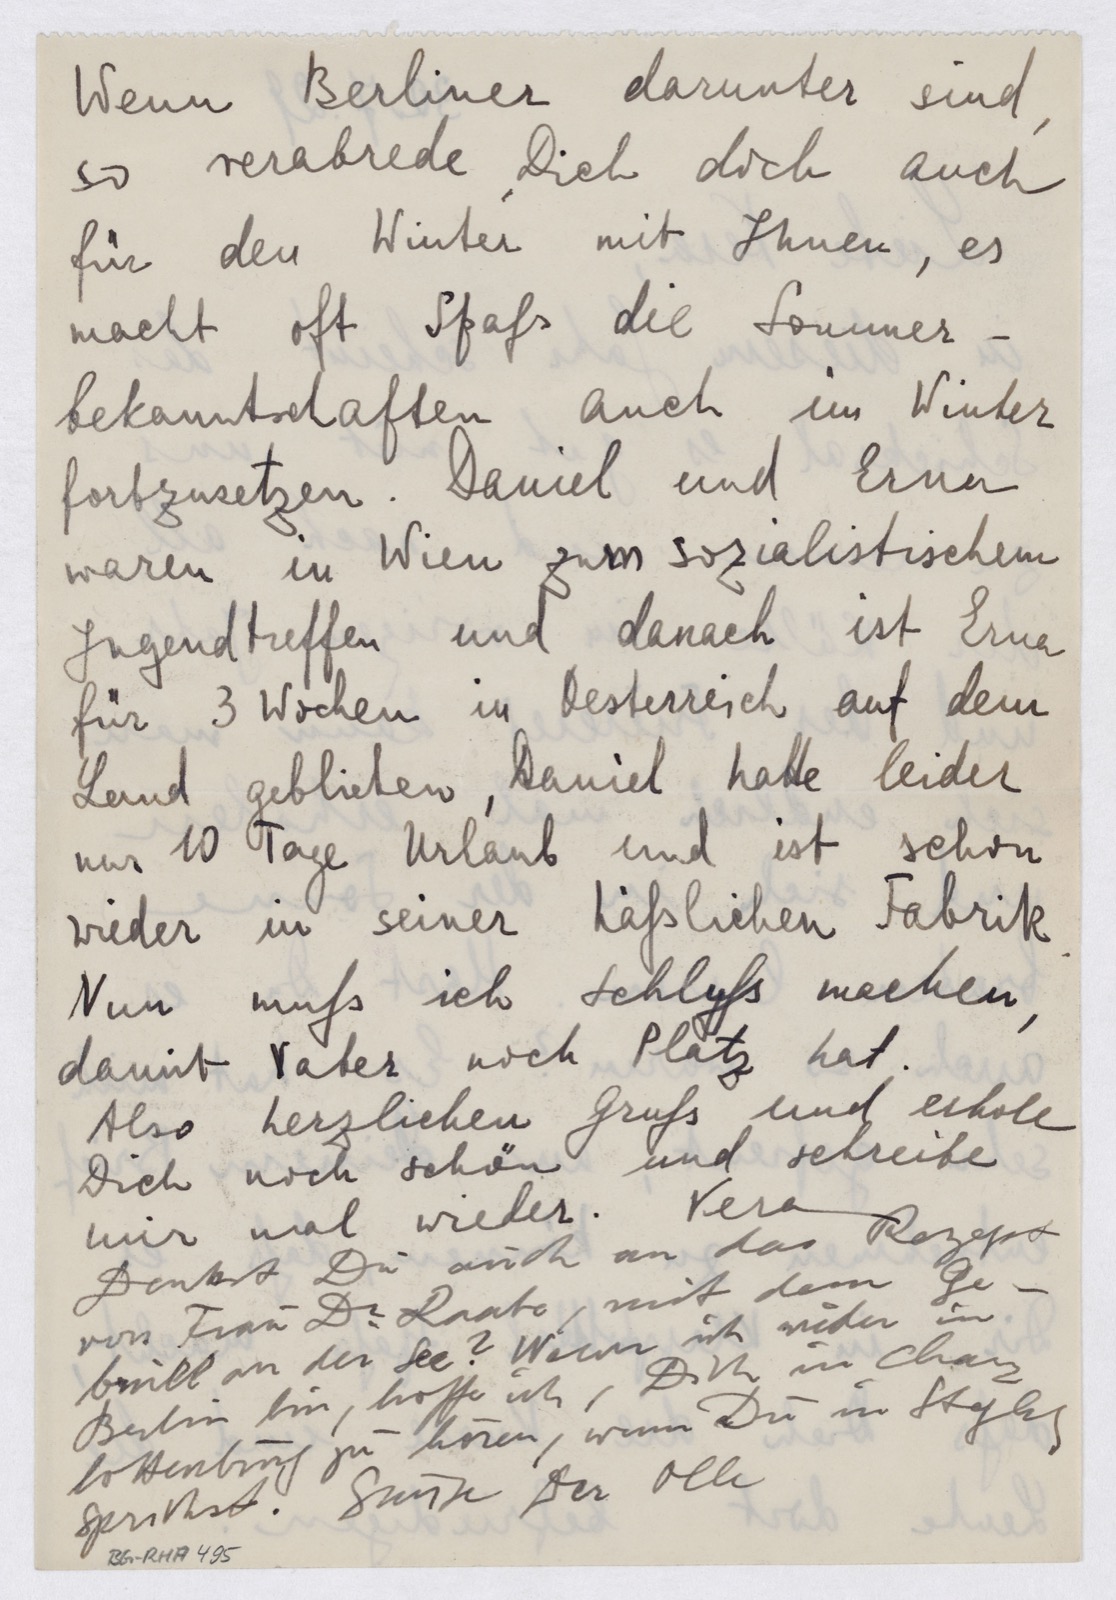 Wenn Berliner darunter sind,
so verabrede Dich doch auch
für den Winter mit Ihnen, es
macht oft Spaß die Sommer-
bekanntschaften auch im Winter
fortzusetzen. Daniel und Erna
waren in Wien zum sozialistischem
Jugendtreffen und danach ist Erna
für 3 Wochen in Oesterreich auf dem
Land geblieben, Daniel hatte leider
nur 10 Tage Urlaub und ist schon
wieder in seiner häßlichen Fabrik.
Nun muß ich Schluß machen,
damit Vater noch Platz hat.
Also herzlichen Gruß und erhole
Dich noch schön und schreibe
mir mal wieder. Vera
Denkst Du auch an das Rezept
von Frau Dr. Raabe, mit dem Ge-
brüll an der See? Wenn ich wieder in
Berlin bin, hoffe ich, Dich in Char
lottenburg zu hören, wenn Du in Steglitz
sprichst. Grüße Der Olle
BG-RHA 495